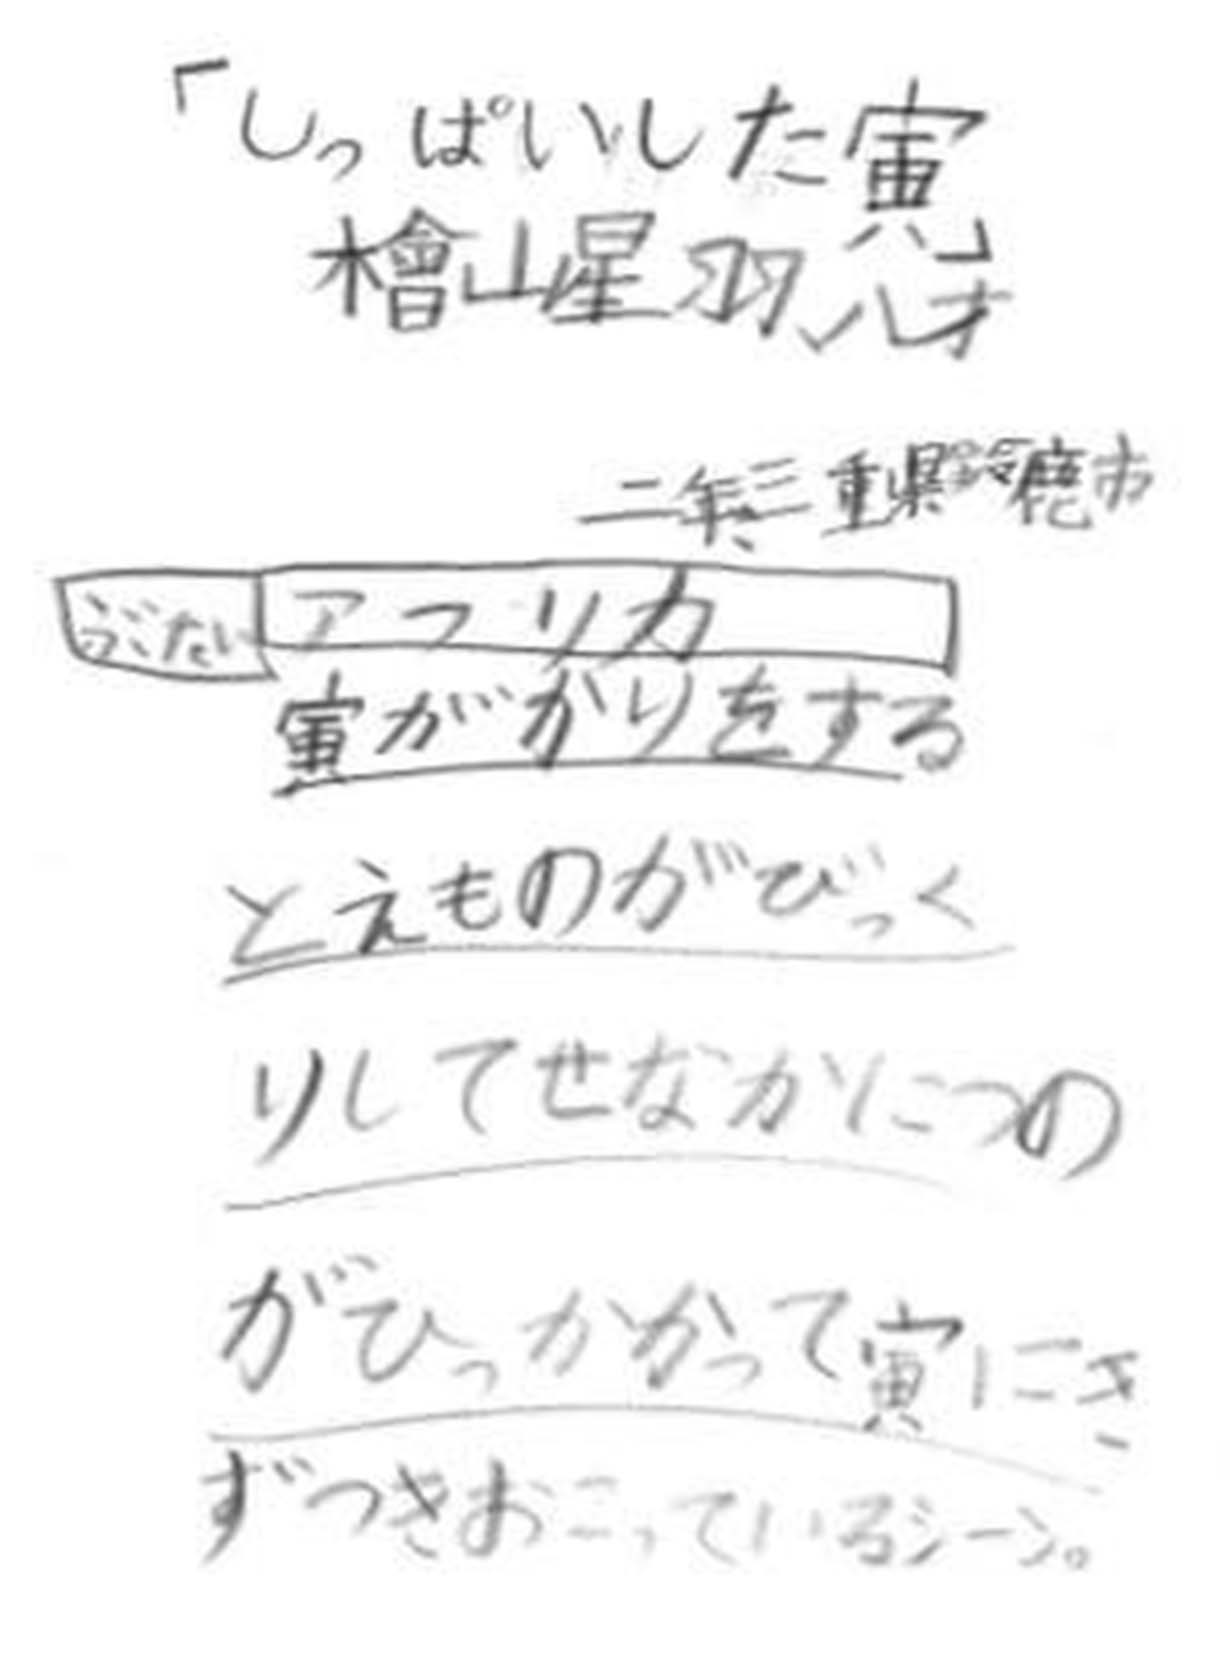 「しっぱいした寅」
檜山星羽 八才
二年 三重県鈴鹿市
ぶたい アフリカ
寅がかりをする
とえものがびっく
りしてせなかにつの
がひっかかって寅にき
ずつきおこっているシーン。